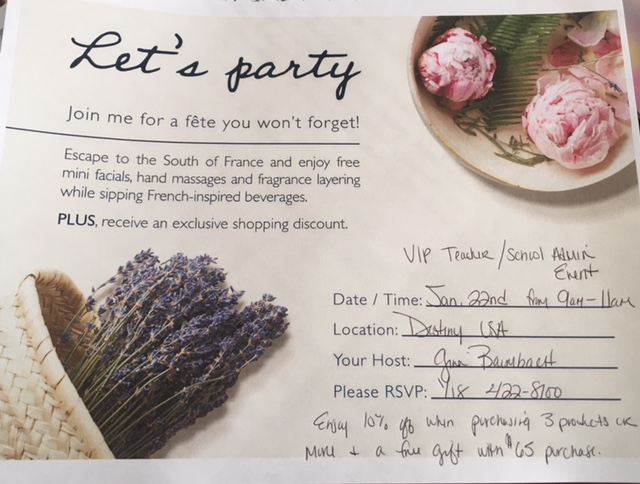 Let's party
Join me for a fête you won't forget!
Escape to the South of France and enjoy free
mini facials, hand massages and fragrance layering
while sipping French-inspired beverages.
PLUS, receive an exclusive shopping discount.
VIP Teacher / School Admin
Event
Date / Time: Jan. 22nd from 9am-11am
Location: Destiny USA
Your Host: Gina
Please RSVP: 422-8100
Enjoy 10% off when purchasing 3 products or
More + a free gift with $65 purchase.